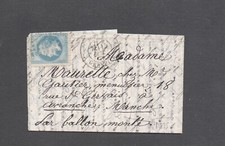 Madame
Maurelle chez Mr
Gautier, menuisier, 18
rue St Gervais
Avranches Manche
Par Ballon monté